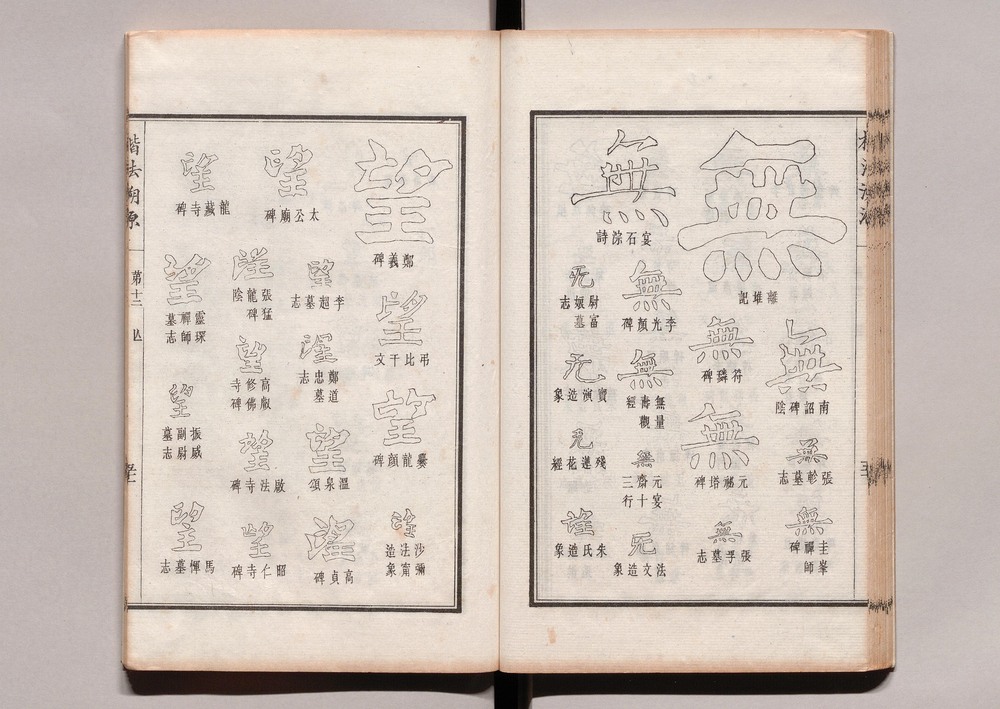 無
離堆記
無
南詔碑陰
無
張軫墓志
無
圭峯禪師碑
無
符璘碑
無
元祕塔碑
無
張孚墓志
無
宴石淙詩
無
李光顏碑
無
無量壽觀經
無
元宴齋十三行
无
法文造象
无
尉富娘墓志
无
寶演造象
无
殘蓮花經
望
朱氏造象
望
鄭義碑
望
弔比干文
望
爨龍顏碑
望
沙彌法甯造象
望
太公廟碑
望
李超墓志
望
鄭道忠墓志
望
溫泉頌
望
高貞碑
望
龍藏寺碑
望
張猛龍碑陰
望
高叡修佛寺碑
望
啟法寺碑
望
昭仁寺碑
望
靈琛禪師墓志
望
振威副尉墓志
望
馬惲墓志
楷法溯源
第十二
亾